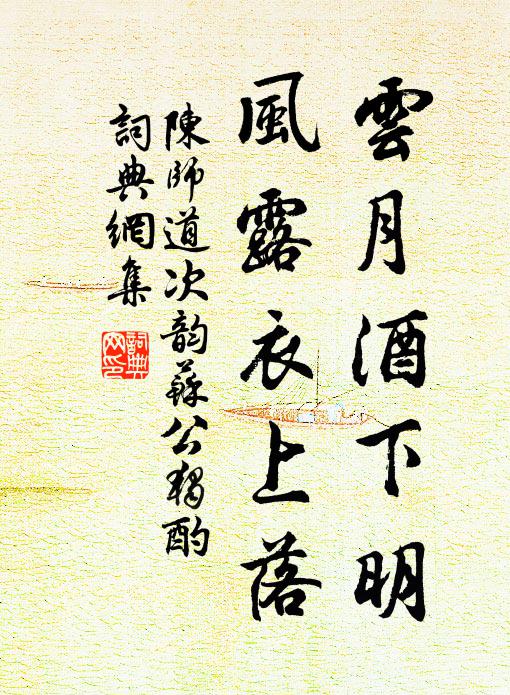 雲月酒下明
風露衣上落
陳師道次韵蘇公獨酌
詞典網集
詞典
网印